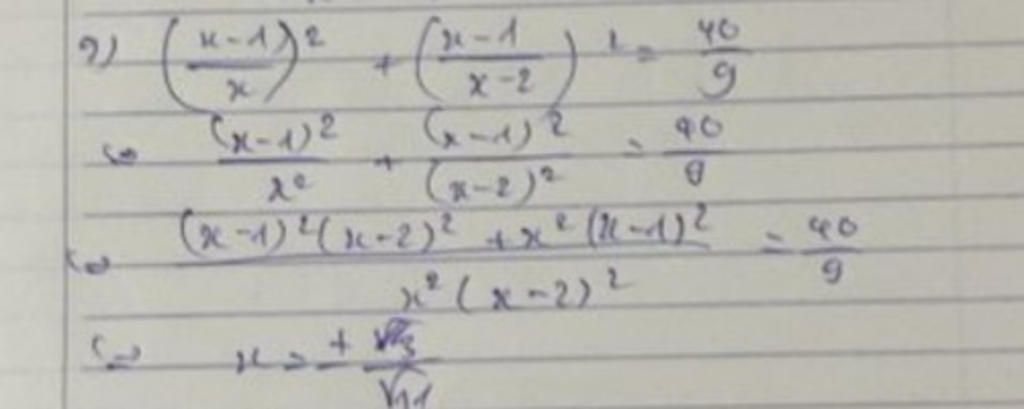 9) ((x-1)/x)² + ((x-1)/(x-2))² = 40/9
⇔ (x-1)²/x² + (x-1)²/(x-2)² = 40/9
⇔ ((x-1)²(x-2)² + x²(x-1)²)/(x²(x-2)²) = 40/9
⇔ x = ±